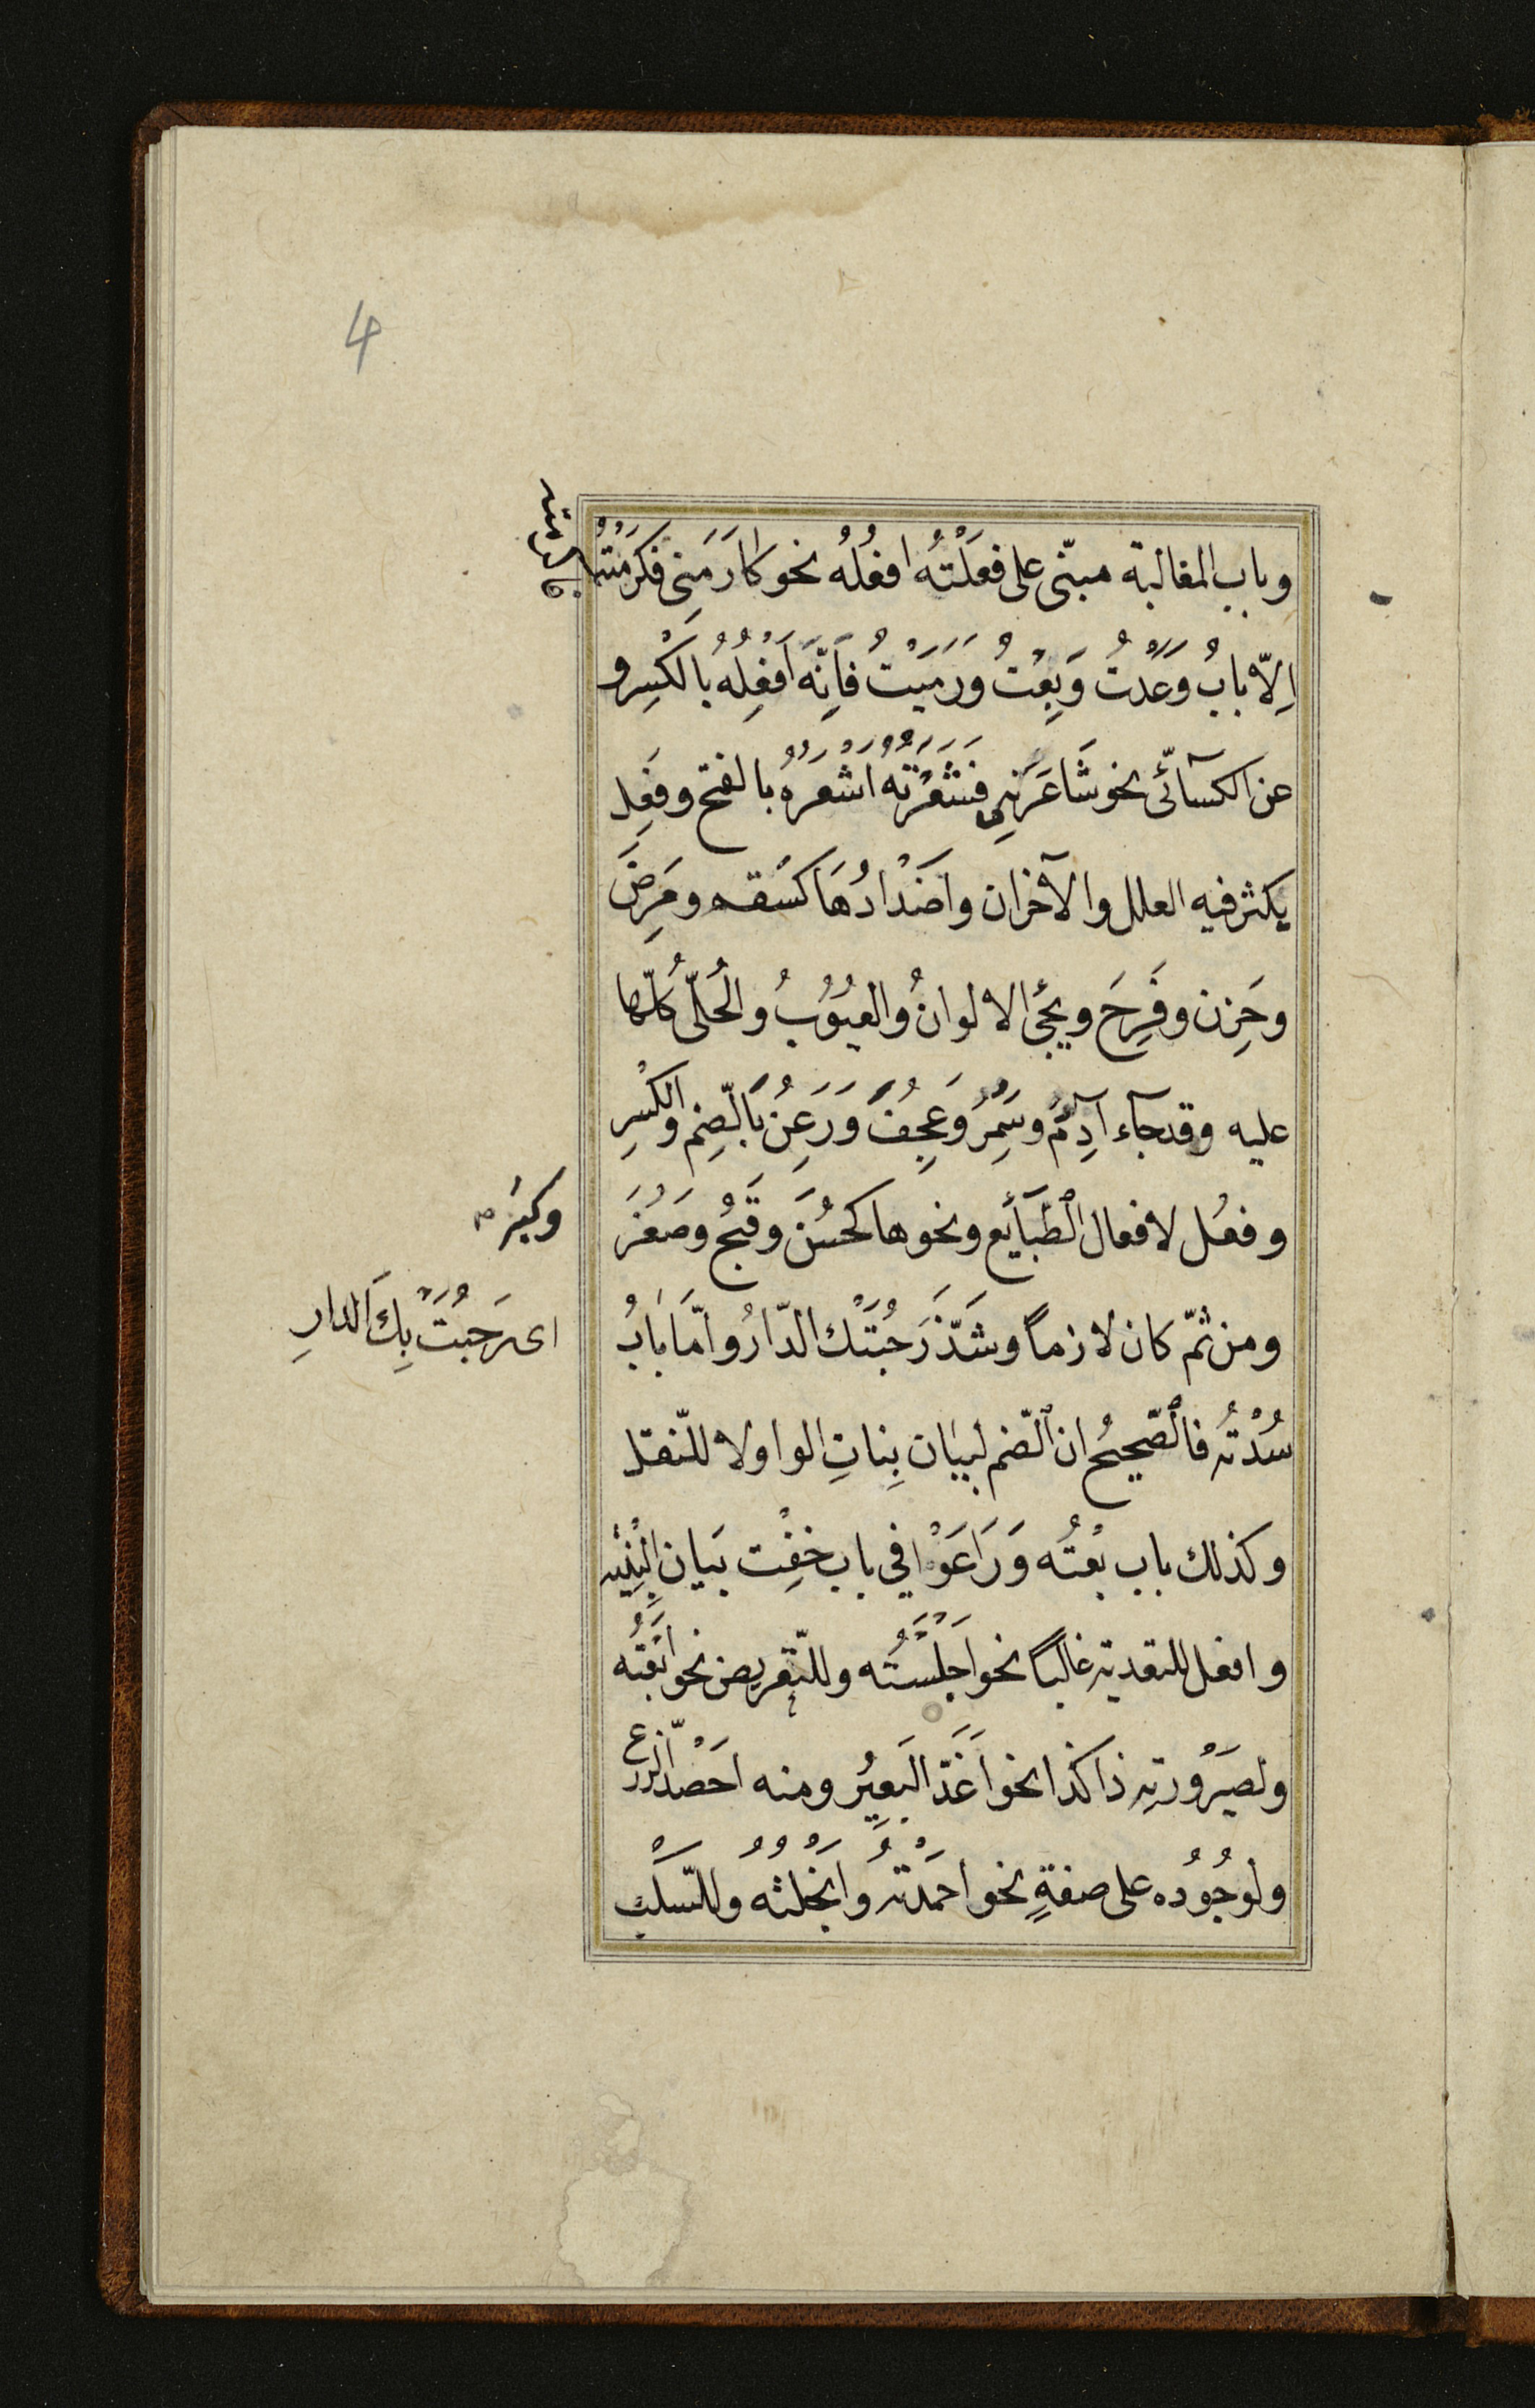 4
وباب المغالبة مبنّى على فعَلْتُه افعُلُه نحو كارَمَنِى فكَرَمْتُه
اِلّا بابُ وَعَدْتُ وَبِعْتُ وَرَمَيْتُ فاِنَّه اَفْعِلُهُ بالكَسِر و
عن الكسآئّى نحو شَاعَرَنِى فشَعَرْتُهُ اَشْعَرُهُ بالفتح وفَعِل
يكثر فيه العلل والآخزان واَضْدادُهَا كسَقم ومَرِضَ
وحَزِن وفَرِحَ ويجَئ الالوانُ والعيُوُبُ والحُلّى كُلّها
عليه وقد جآء آدِمُ وسَمِرُ وَعَجِفُ وَرَعِنُ بالّضِم والكَسْرِ
وفعُل لافعال الطّبَآيِع ونحوها كحَسُنَ وقَبُح وصَغُرَ
وكبُر
ومن ثمّ كان لازماً وشَذّ رَحُبَتْك الدّارُ واَمّا بابُ
اى رَحُبَتْ بِكَ الدارِ
سُدْتُه فالّصحِيحُ ان الّضم لبيَان بِناتِ الواو لا للنّقل
وكذلك باب بعْتُه وَرَاعَوْا فى باب خِفْت بَيان البِنْيَه
وافعل للتعديةِ غالباً نحو اَجْلَسْتُه وللتّعريض نحو اَبَعْتُه
ولصَيْرُورتِهِ ذا كذا نحو اَغَدّ البَعيِرُ ومنه احَصْد الزّرع
ولوُجُودُه على صفةٍ نحو احمَدْتُه واَبْخَلْتُهُ وللسّلَب